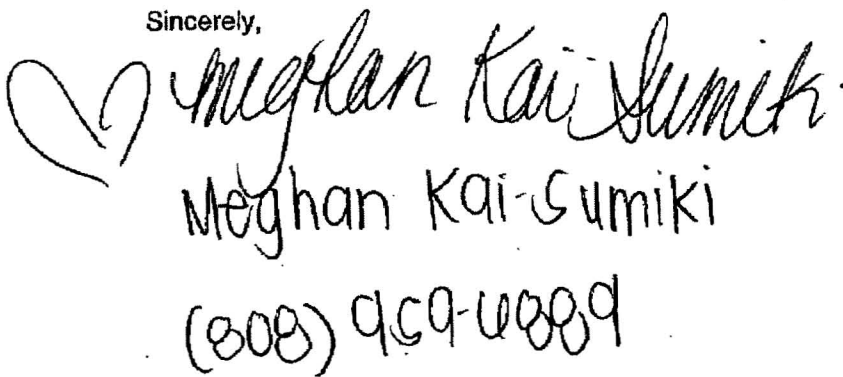 Sincerely,
Meghan Kai-Sumiki
Meghan Kai-Sumiki
(808) 959-6889